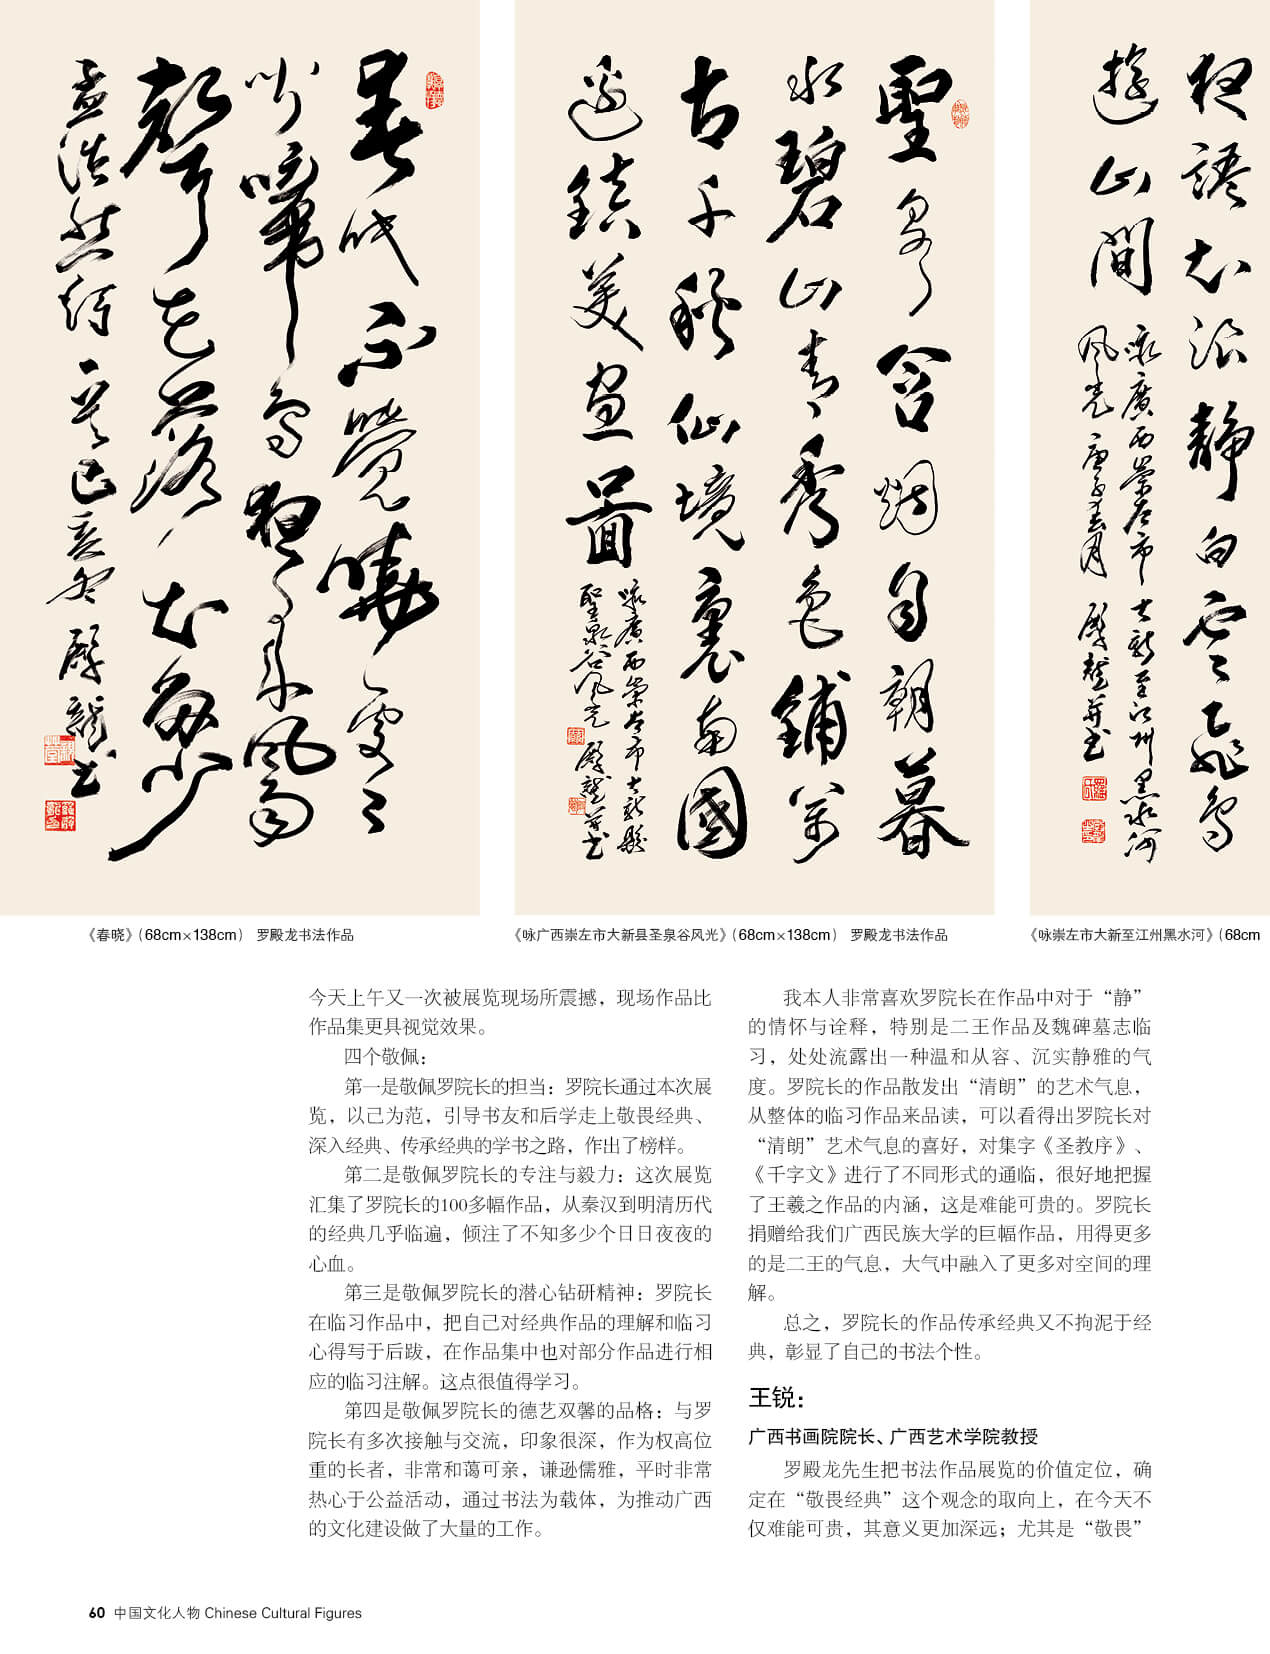 春眠不覺曉處處
聞啼鳥夜來風雨
聲花落知多少
孟浩然詩一首己亥冬殿龍書
聖泉含烟自朝暮
水碧山青秀色鋪萬
古千秋仙境裏南國
邊鎮美畫圖
咏廣西崇左市大新縣
聖泉谷風光 殿龍并書
夜語知浪靜白雲飛鳥
遊山間
咏廣西崇左市大新至江州黑水河
風光 庚子 月 殿龍并書
《春晓》(68cm×138cm) 罗殿龙书法作品
《咏广西崇左市大新县圣泉谷风光》(68cm×138cm) 罗殿龙书法作品
《咏崇左市大新至江州黑水河》(68cm
今天上午又一次被展览现场所震撼，现场作品比
作品集更具视觉效果。
四个敬佩：
第一是敬佩罗院长的担当：罗院长通过本次展
览，以己为范，引导书友和后学走上敬畏经典、
深入经典、传承经典的学书之路，作出了榜样。
第二是敬佩罗院长的专注与毅力：这次展览
汇集了罗院长的100多幅作品，从秦汉到明清历代
的经典几乎临遍，倾注了不知多少个日日夜夜的
心血。
第三是敬佩罗院长的潜心钻研精神：罗院长
在临习作品中，把自己对经典作品的理解和临习
心得写于后跋，在作品集中也对部分作品进行相
应的临习注解。这点很值得学习。
第四是敬佩罗院长的德艺双馨的品格：与罗
院长有多次接触与交流，印象很深，作为权高位
重的长者，非常和蔼可亲，谦逊儒雅，平时非常
热心于公益活动，通过书法为载体，为推动广西
的文化建设做了大量的工作。
我本人非常喜欢罗院长在作品中对于“静”
的情怀与诠释，特别是二王作品及魏碑墓志临
习，处处流露出一种温和从容、沉实静雅的气
度。罗院长的作品散发出“清朗”的艺术气息，
从整体的临习作品来品读，可以看得出罗院长对
“清朗”艺术气息的喜好，对集字《圣教序》、
《千字文》进行了不同形式的通临，很好地把握
了王羲之作品的内涵，这是难能可贵的。罗院长
捐赠给我们广西民族大学的巨幅作品，用得更多
的是二王的气息，大气中融入了更多对空间的理
解。
总之，罗院长的作品传承经典又不拘泥于经
典，彰显了自己的书法个性。
王锐：
广西书画院院长、广西艺术学院教授
罗殿龙先生把书法作品展览的价值定位，确
定在“敬畏经典”这个观念的取向上，在今天不
仅难能可贵，其意义更加深远；尤其是“敬畏”
60 中国文化人物 Chinese Cultural Figures